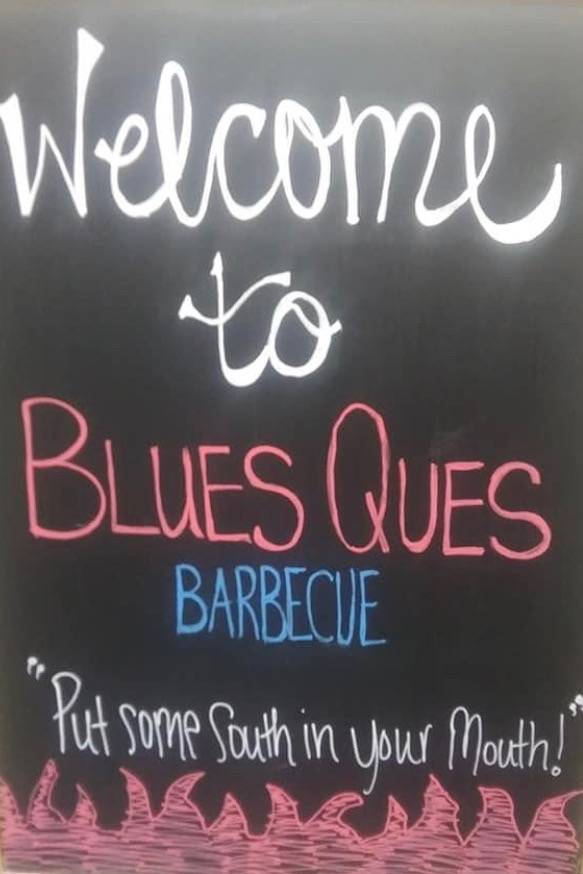 Welcome
to
BLUES QUES
BARBECUE
"Put some South in your Mouth!"